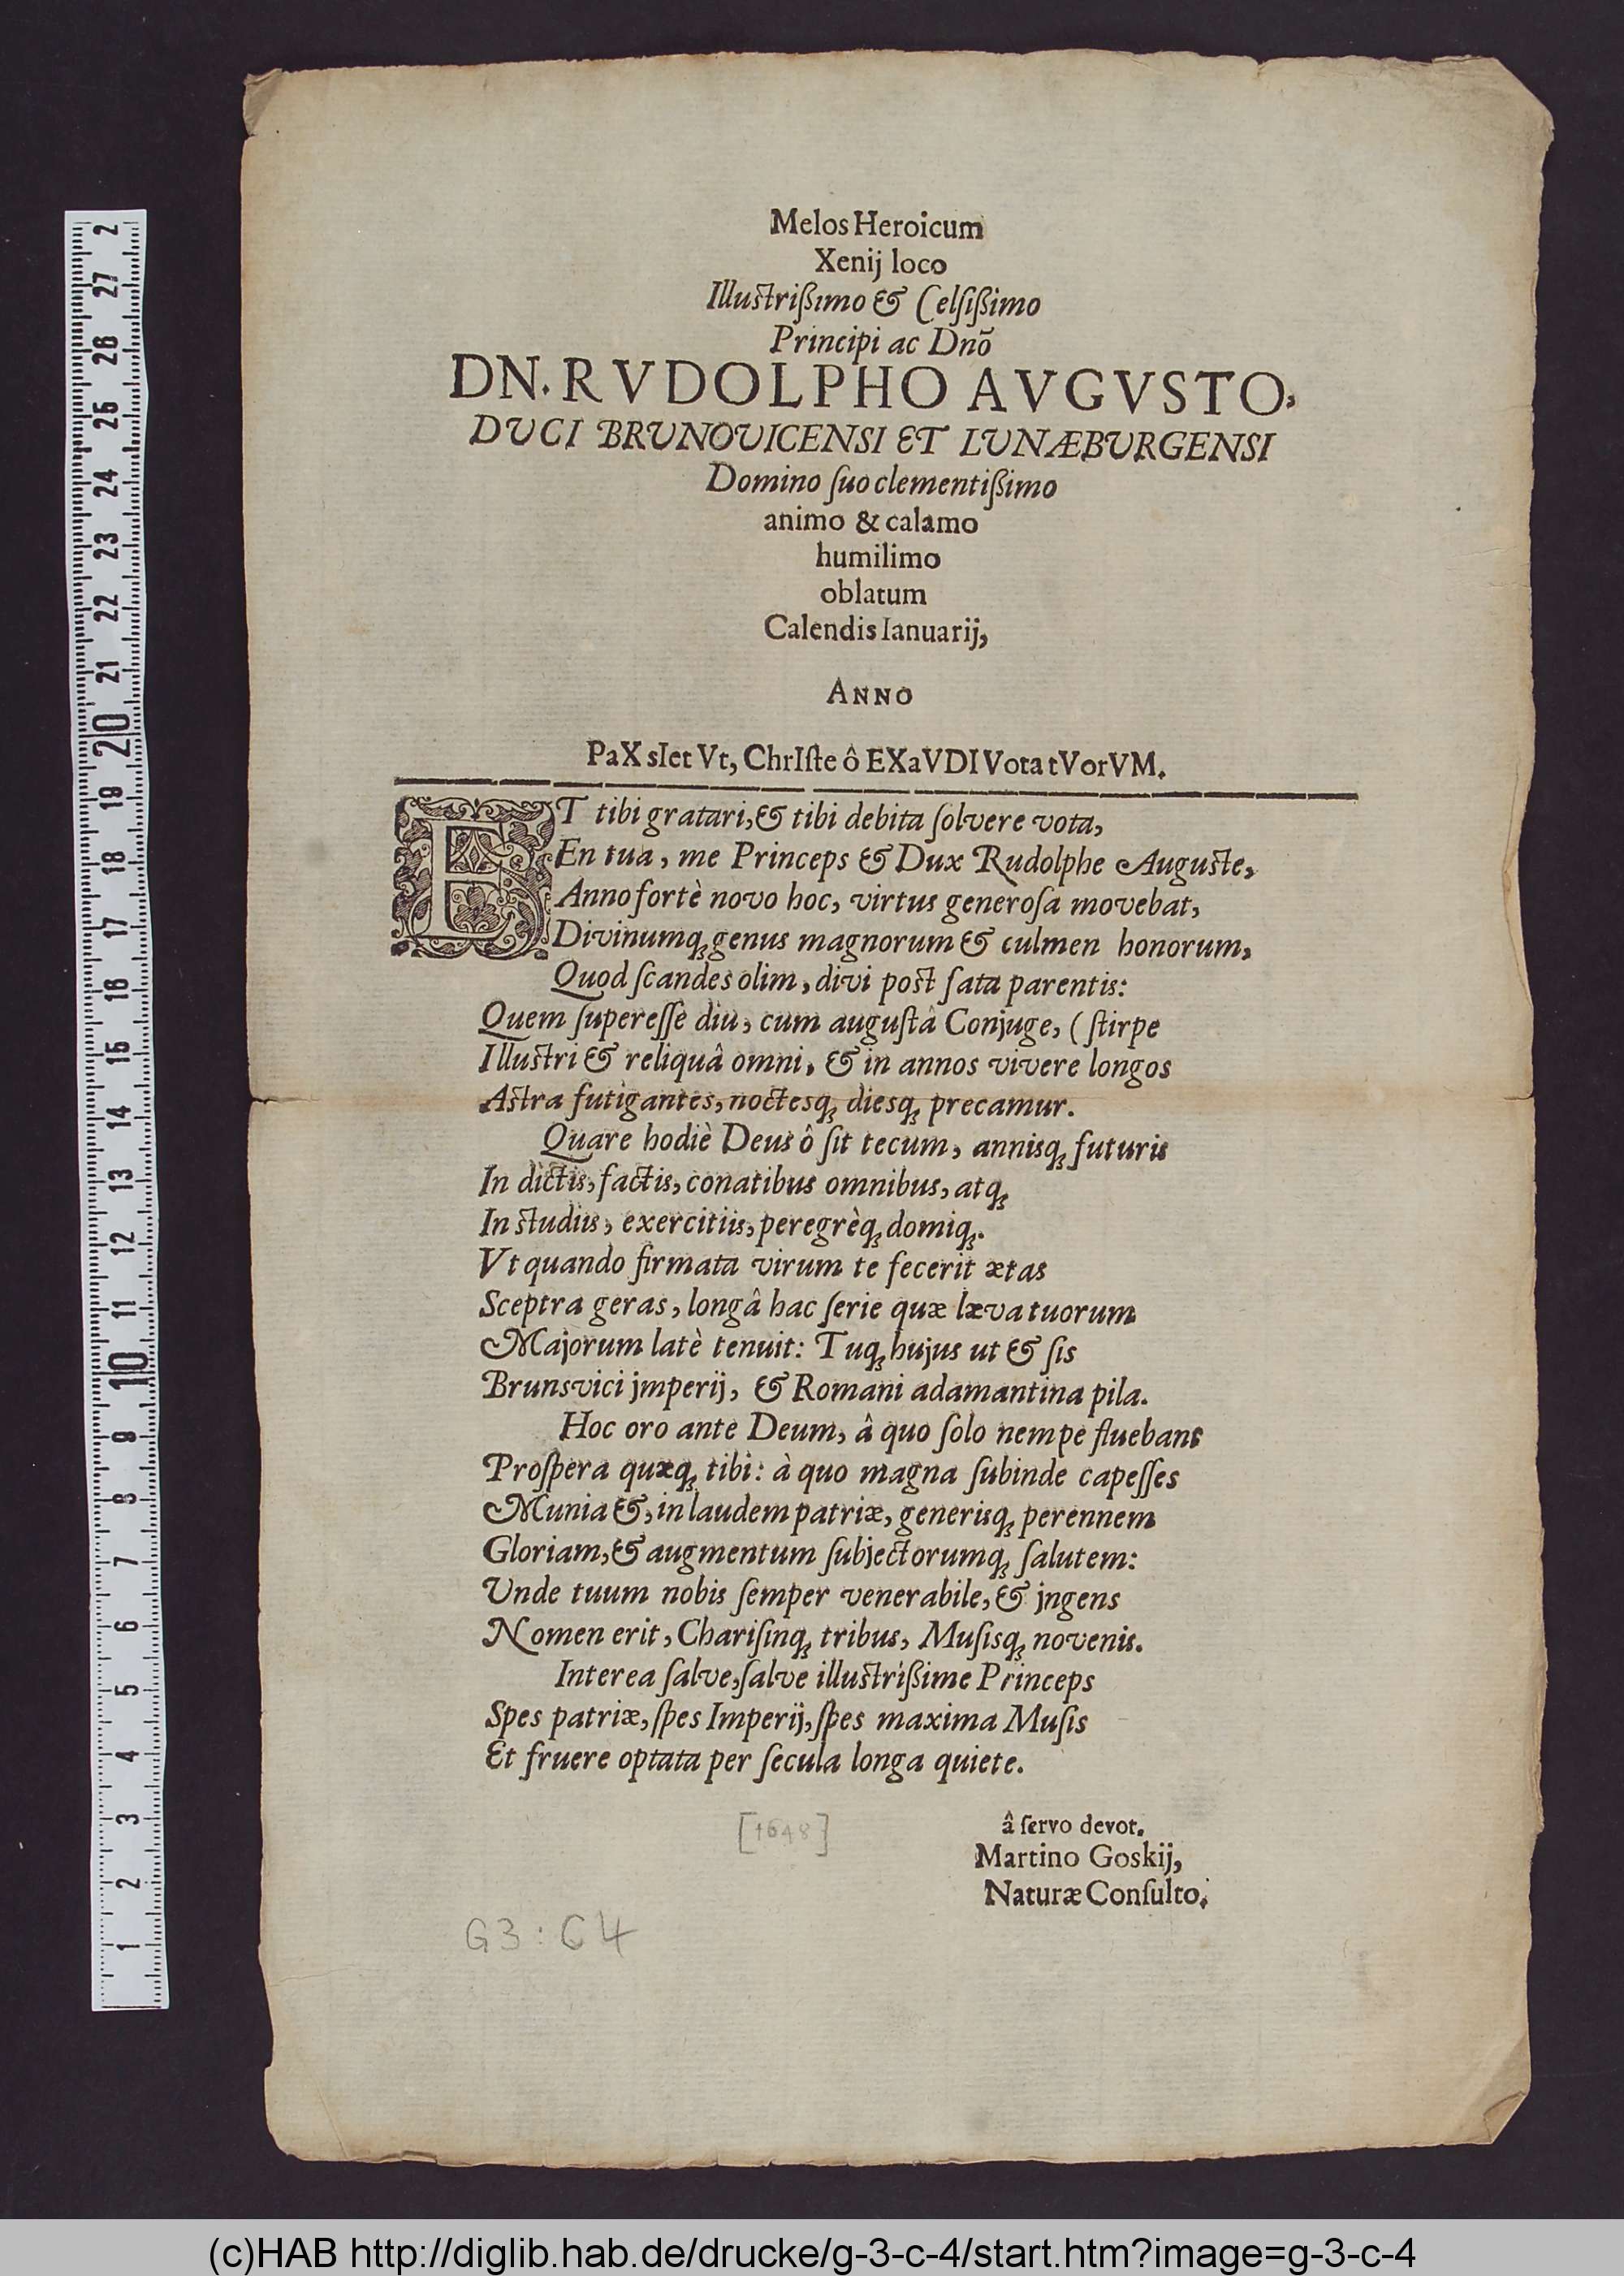 Melos Heroicum
Xenij loco
Illustrißimo & Celſißimo
Principi ac Dnõ
DN. RVDOLPHO AVGVSTO,
DUCI BRUNOVICENSI ET LUNÆBURGENSI
Domino ſuo clementißimo
animo & calamo
humilimo
oblatum
Calendis Ianuarij,
ANNO
PaX sIet Vt, ChrIſte ô EXaVDI Vota tVorVM.
ET tibi gratari, & tibi debita ſolvere vota,
En tua, me Princeps & Dux Rudolphe Auguste,
Anno fortè novo hoc, virtus generoſa movebat,
Divinumq́ꝫ genus magnorum & culmen honorum,
Quod ſcandes olim, divi post ſata parentis:
Quem ſupereſſe diu, cum auguſtâ Conjuge, (ſtirpe
Illustri & reliquâ omni, & in annos vivere longos
Astra futigantes, noctesqꝫ diesqꝫ precamur.
Quare hodiè Deus ô ſit tecum, annisqꝫ futuris
In dictis, factis, conatibus omnibus, atqꝫ
In studiis, exercitiis, peregrèqꝫ domiqꝫ.
Vt quando firmata virum te fecerit ætas
Sceptra geras, longâ hac ſerie quæ læva tuorum
Majorum latè tenuit: Tuqꝫ hujus ut & ſis
Brunsvici jmperij, & Romani adamantina pila.
Hoc oro ante Deum, â quo ſolo nempe fluebant
Proſpera quæqꝫ tibi: à quo magna ſubinde capeſſes
Munia &, in laudem patriæ, generisqꝫ perennem
Gloriam, & augmentum ſubjectorumqꝫ ſalutem:
Unde tuum nobis ſemper venerabile, & jngens
Nomen erit, Chariſinqꝫ tribus, Muſisqꝫ novenis.
Interea ſalve, ſalve illustrißime Princeps
Spes patriæ, ſpes Imperij, ſpes maxima Muſis
Et fruere optata per ſecula longa quiete.
â ſervo devot.
[1648]
Martino Goskij,
Naturæ Conſulto.
G3 : C4
1 2 3 4 5 6 7 8 9 10 11 12 13 14 15 16 17 18 19 20 21 22 23 24 25 26 27 2
(c)HAB http://diglib.hab.de/drucke/g-3-c-4/start.htm?image=g-3-c-4